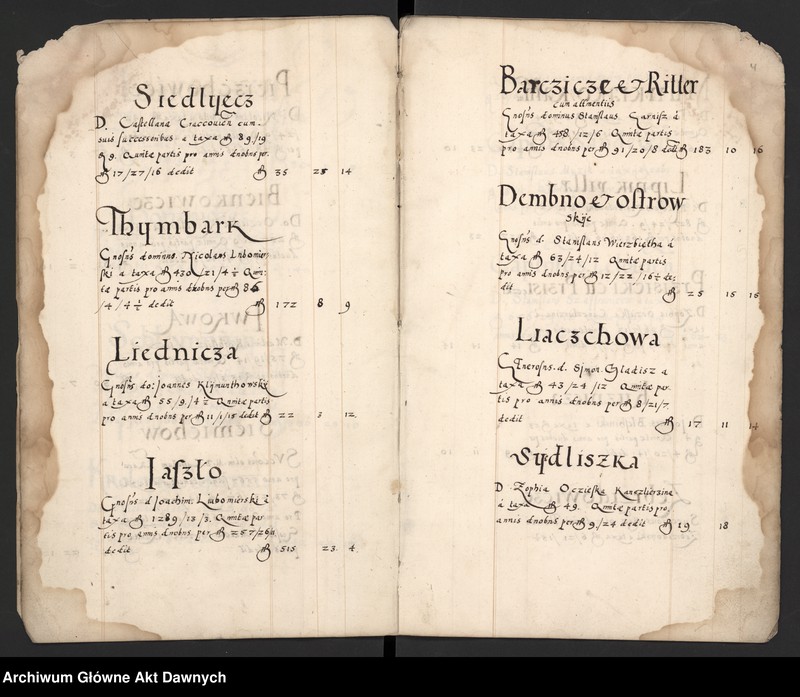 Siedlyecz
D. Castellana Craccouien cum
suis successoribus a taxa 89/19
9. Quintae partis pro annis duobus per
17/27/16 dedit 35 25 14
Thymbark
Gnosus dominus Nicolaus Lubomier-
ski a taxa 430/21/4 ½ Quin-
tae partis pro annis duobus per 86
/4/4 ½ dedit 172 8 9
Liednicza
Gnosus do: Joannes Klymunthowsky
a taxa 55/9/4 ½ Quintae partis
pro annis duobus per 11/1/15 dedit 22 3 12
Jaszło
Gnosus d Joachim. Lubomierski a
taxa 1289/13/3. Quintae par
tis pro annis duobus per 257/26
dedit 515 23 4
4
Barczicze et Ritter
cum attinentiis
Gnosus dominus Stanslaus Garnisz a
taxa 458/12/6 Quintae partis
pro annis duobus per 91/20/8 dedit 183 10 16
Dembno et ostrow
skije
Gnosus d. Stanislaus Wierzbietha a
taxa 63/24/12 Quintae partis
pro annis duobus per 12/22/16 ½ de:
dit 25 15 15
Liaczchowa
Generosus. d. Symon Gladisz a
taxa 43/24/12 Quintae par
tis pro annis duobus per 8/21/7
dedit 17 11 14
Sydliszka
D Zophia Oczieska Kanczlierzina
a taxa 49. Quintae partis pro
annis duobus per 9/24 dedit 19 18
Archiwum Główne Akt Dawnych